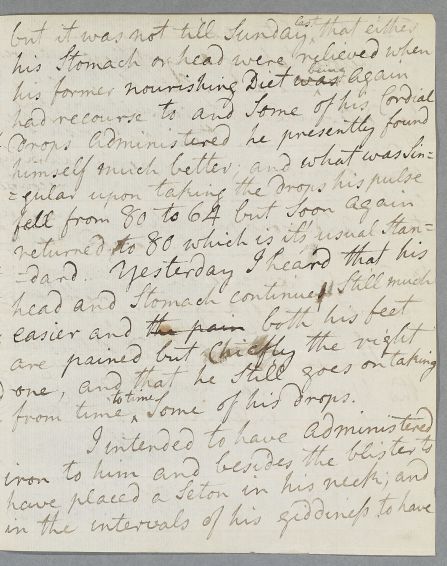 but it was not till Sunday last, that either
his Stomach or head were relieved when
his former nourishing Diet was being again
had recourse to and Some of his Cordial
Drops administered he presently found
himself much better; and what was Sin=
=gular upon taking the Drops his pulse
fell from 80 to 64 but soon again
returned to 80 which is its usual Stan=
=dard. Yesterday I heard that his
head and Stomach continue, Still much
easier and the pain both his feet
are pained but Chiefly the right
one, and that he Still goes on taking
from time to time Some of his drops.
I intended to have administered
iron to him and besides the blister to
have placed a Seton in his neck; and
in the intervals of his giddiness to have